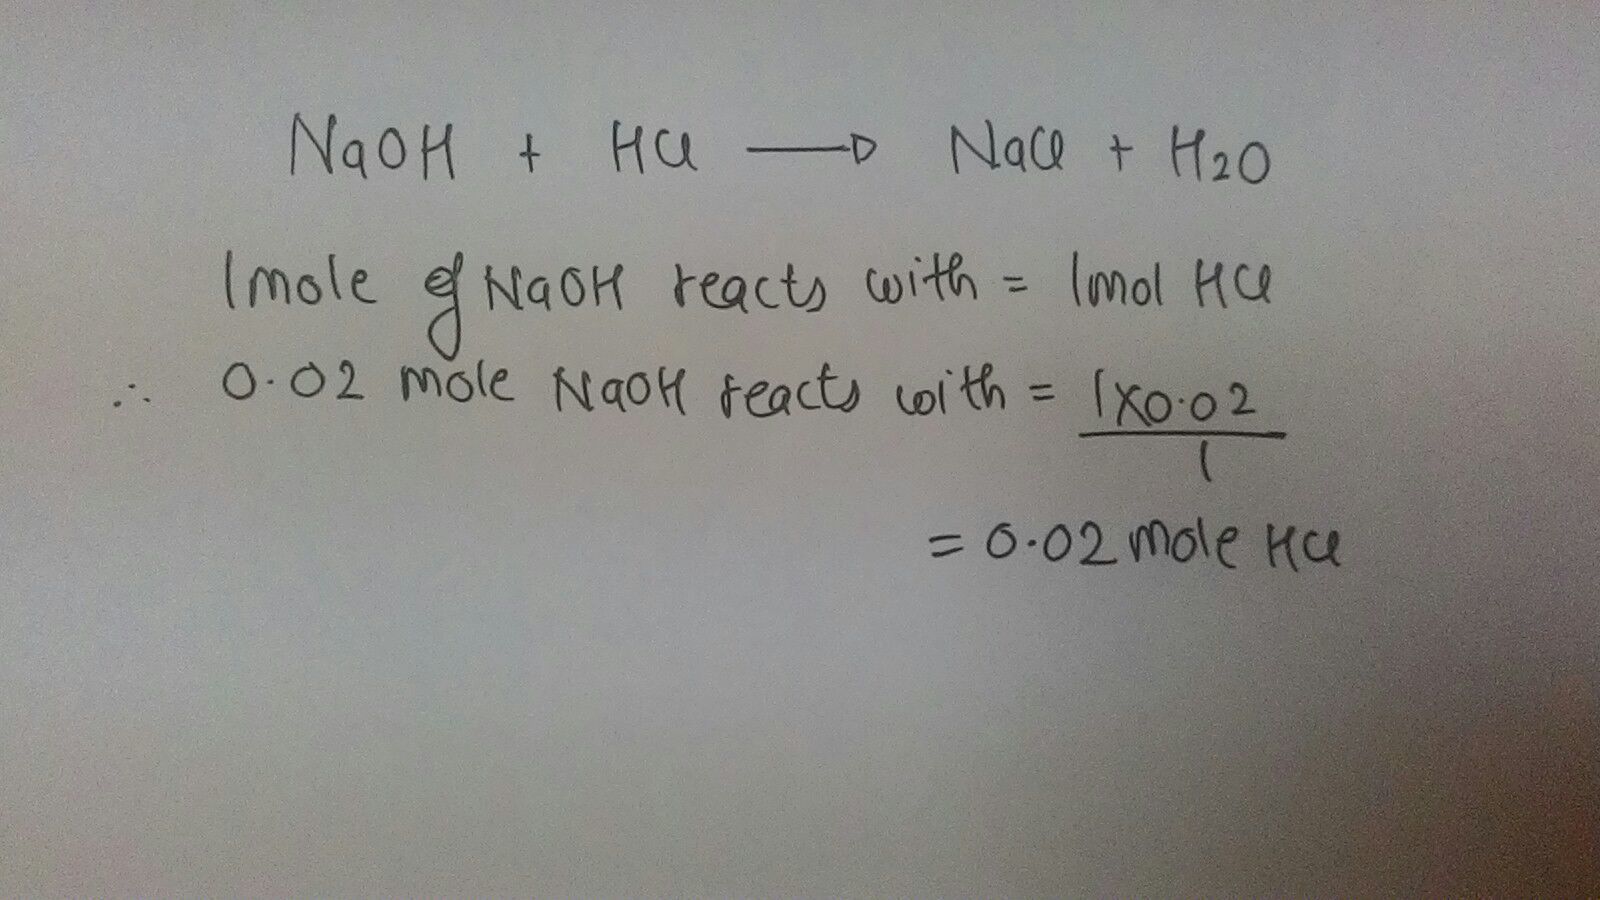 NaOH + HCl → NaCl + H2O
1mole of NaOH reacts with = 1mol HCl
∴ 0.02 mole NaOH reacts with = 1x0.02
1
= 0.02 mole HCl